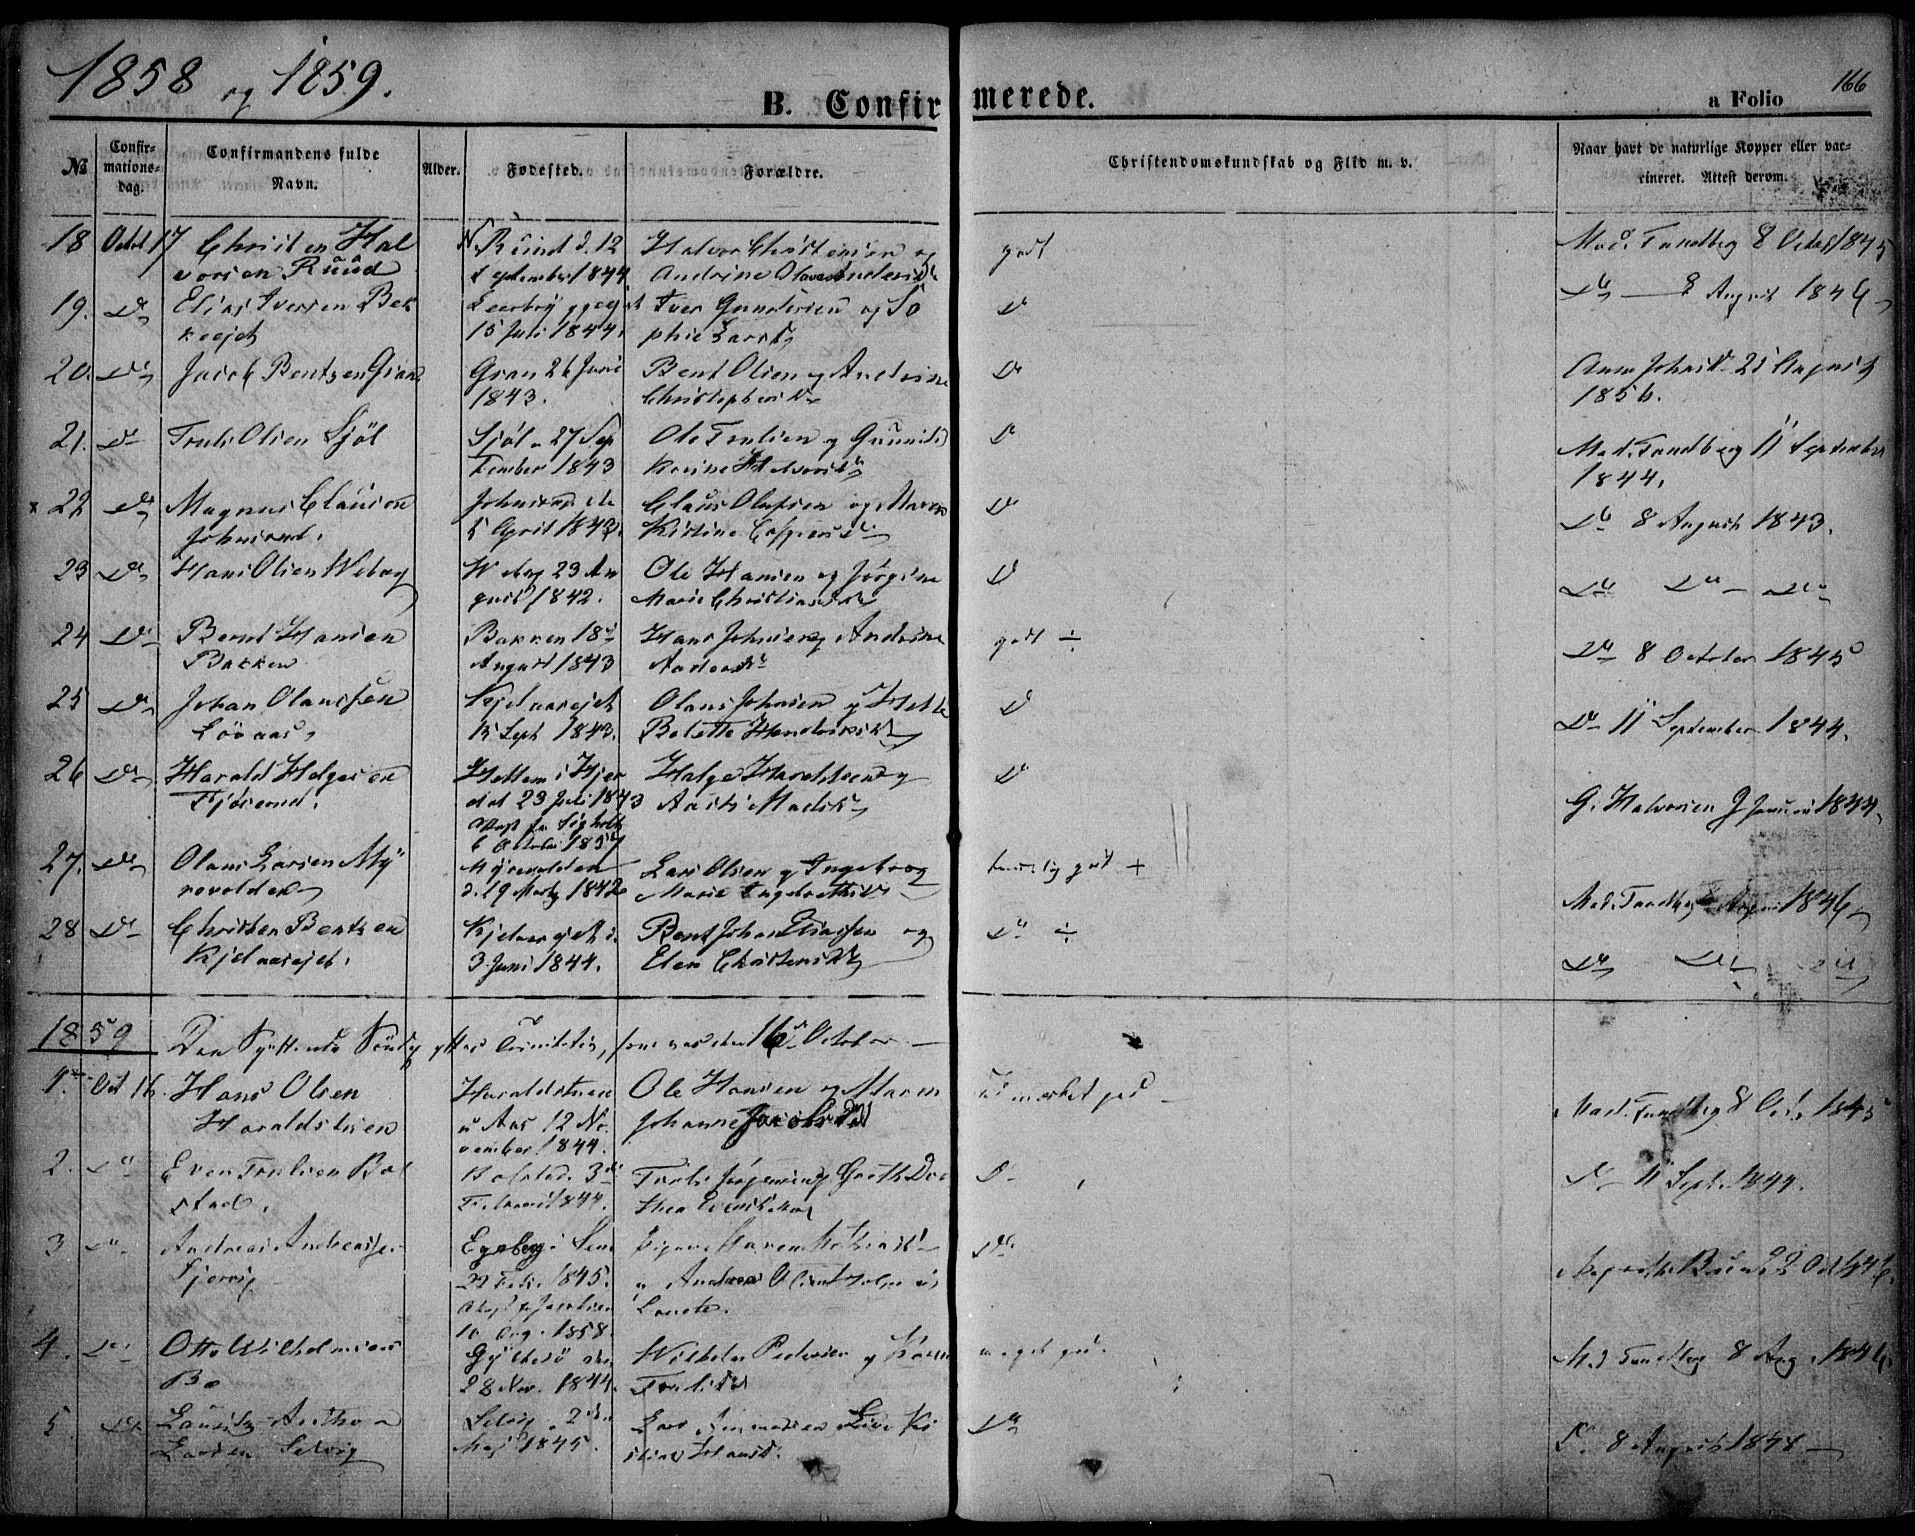 1858 og 1859.
B. Confirmerede.
a Folio 166
№
Confirmationsdag.
Confirmandens fulde Navn.
Alder.
Fødested.
Forældre.
Christendomskundskab og Flid m. v.
Naar havt de naturlige Kopper eller vaccineret. Attest derom.
18 Octob 17 Christen Hal
vorsen Ruud
N. Ruud d. 12
September 1844
Halvor Christensen og
Andrine Olava Andersd
godt
Mad. Tandberg 8 Octob 1845
19. Do Elias Iversen Bek
keejet
15 Juli 1844.
Iver Gundersen og So
phie Larsd
Do
Do 8 August 1846
20. Do Jacob Bentsen Gran
Gran 26 Juni
1843.
Bent Olsen og Andrine
Christophersd
Do
Anm Johnsd 25 August
1856.
21. Do Truls Olsen Sjøl
Sjøl 27 Sep
tember 1843
Ole Trulsen og Gunnild
Karine Halvorsd
Do
Mad. Tandberg 11 September
1844.
x 22 Do Magnus Clausen
Johnsrud.
5 April 1843.
Claus Olafsen og Maren
Kirstine Caspersd
Do
Do 8 August 1843.
23 Do Hans Olsen Weberg
Weberg 23 Au
gust 1842.
Ole Hansen og Jørgine
Marie Christiansd
Do
Do Do Do
24 Do Bernt Hansen
Bakken
Bakken 18
August 1843
Hans Johnsen og Andrine
Andersd
godt ÷
Do 8 October 1845
25 Do Johan Olaussen
Løvaas,
Kjelaasejet
15 Sept 1843.
Olaus Johnsen og Helle
Bolette Hendriksd
Do
Do 11 September 1844.
26 Do Harald Helgesen
Fjøserud.
Hettem i Hjer
dal 23 Juli 1843
6 October 1857
Helge Haraldsen og
Aaste Madsd
Do
G. Halvorsen 9 Januar 1844.
27. Do Olaus Larsen My
revolden
Myrevolden
d. 19 Marts 1842
Lars Olsen og Ingeborg
Marie Engebrethsd
temmelig godt +
Mad. Tandberg 8 August 1846
28 Do Christen Bentsen
Kjelaasejet.
Kjelaasejet d.
3 Juni 1844.
Bent Johan Eliassen og
Elen Christensd
Do ÷
Do Do Do
1859 Den Syttende Søndag efter Trinitatis, som var den 16 October
1. Oct 16. Hans Olsen
Haraldstuen
Haraldstuen
u Aas 12 No
vember 1844.
Ole Hansen og Maren
Johanne Jacobsd
Udmærket god
Mad. Tandberg 8 Oct. 1845
2. Do Even Trulsen Bol
stad.
Bolstad. 3
Februar 1844.
Truls Jørgensen og Grethe Doro
thea
Do
Do 11 Sept. 1844.
3 Do Andreas Andreassen
Fjervig
Egeberg i Lier
22 Feb. 1845.
10 Aug. 1858.
Pigen Maren Mathiasd
Do
22 Oct 1846.
4. Do Otto Wilhelmsen
Bø
28 Nov. 1844.
Wilhelm Pedersen og Karen
Trulsd
meget god.
Md Tandberg 8 Aug. 1846.
5. Do Lauritz Antho
Larsen Selvig
Selvig 2den
Maj 1845.
Lars Amundsen Live Ki
stine Hansd.
Do
D. 8 August 1848